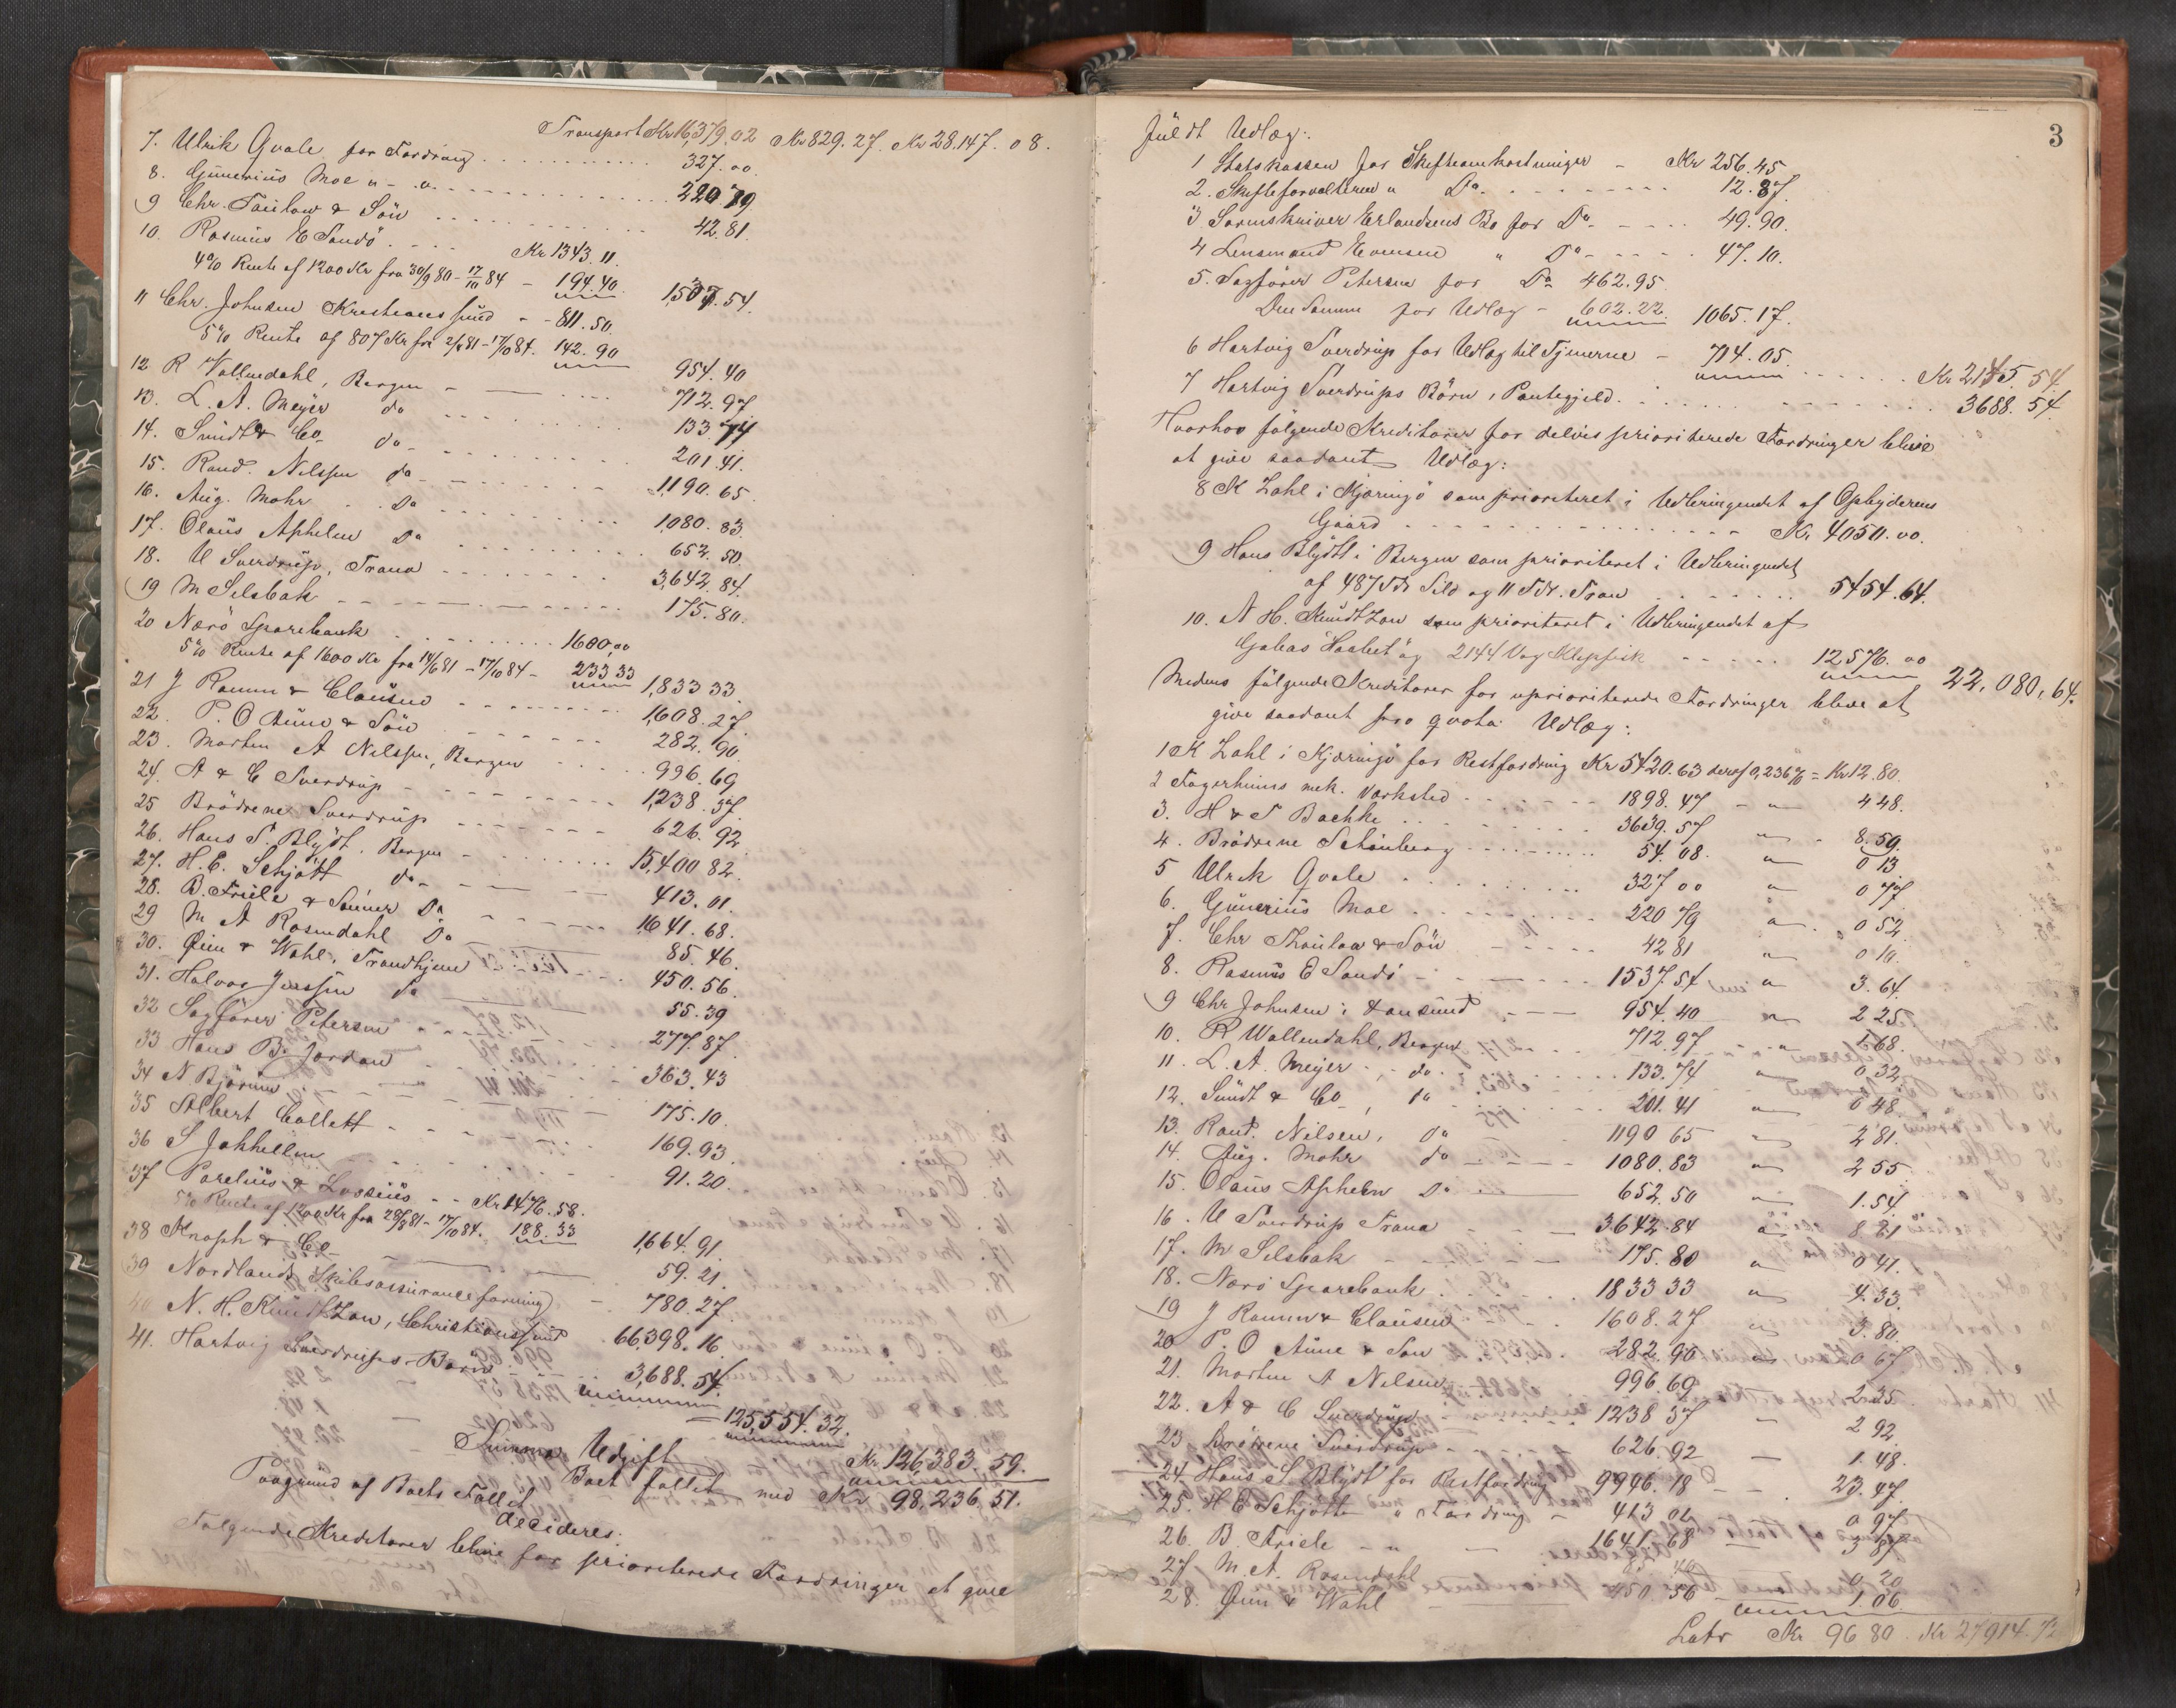 Transport Kr 16,379.02 Kr 829.27. Kr 28.147.08.
7. Ulrik Qvale for Fordring 327.00.
8. Gunerius Moe " - " 220 79
9 Chr. Taulow & Sön 42.81.
10. Rasmus E Sandö Kr 1343.11.
4% Rente af 1200 Kr fra 30/9 80 - 17/10 84 - 194.40. 1,537.54.
11 Chr. Johnsen Kristianssund - - 811.50.
5% Rente af 807 Kr fra 2/4 81 - 17/10 84. 142.90 954.40
12 R Wallendahl, Bergen 712.97
13. L. A. Meyer do 133.74
14. Sundt & Co do 201.41.
15. Rand. Nilssen do 1190.65.
16. Aug. Mohr Do 1,080.83.
17. Olaus Asphelen Do 652.50.
18. U Sverdrup, Trana 3,642.84.
19 M Selsbak 175.80.
20 Nærö Sparebank 1600,00
5% Rente af 1600 Kr fra 14/6 81 - 17/10 84 - 233 33 1,833 33
21 J Ramm & Clausen 1,608.27.
22. P. O Aune & Sön 282.90
23. Morten A Nilssen, Bergen 996.69
24. A & C Sverdrup 1,238.37.
25 Brödrene Sverdrup 626.92
26. Hans S. Blydt, Bergen 15,400 82.
27. H. E. Schjött do 413.01.
28. B. Friele & Sönner Do 1641.68.
29 M A Rosendahl Do 85.46.
30. Öien & Wahl, Trondhjem 450.56.
31. Halvor Jenssen do 55.39
32 Sagförer Petersen 277.87.
33 Hans B. Jordan 363.43
34 N Björum 175.10.
35 Albert Collett 169.93.
36 S Jakhellen 91.20.
37 Parelius & Lossius - - Kr 1476.58.
5% Rente af 1200 Kr fra 28/8 81 - 17/10 84. 188.33 1,664.91.
38 Knoph & Co 59.21.
39 Nordlands Skibsassuranceforening 780.27.
40 N. H. Knudtzon, Christianssund 66,398.16.
41. Hartvig Sverdrups Börn 3,688.54.
125,554.32.
Summa Udgift Kr. 126,383.59.
Boet fallit med Kr 98,236.51.
Paagrund af Boets Fallit
decideres:
Følgende Kreditorer blive for prioriterede Fordringer at give
3
fuldt Udlæg:
1 Statskassen for Skifteomkostninger - Kr 256.45
2. Skifteforvalteren " Do. 12.87.
3 Sorenskriver Erlandsens Bo for Do 49.90.
4 Lensmand Evensen " Do 47.10.
5. Sagförer Petersen for Do 462.95
Den Samme for Udlæg - 602.22. 1065.17.
6 Hartvig Sverdrup for Udlæg til Tjenerne - 714.05. Kr 2145.54.
7 Hartvig Sverdrups Börn, Pantegjeld 3688.54
Hvorhos fölgende Kreditorer for delvis prioriterede Fordringer blive
at give saadant Udlæg:
8 K Zahl i Kjæringö som prioriteret i Udbringendet af Opbyderens
Gaard Kr 4050.00.
9 Hans Blydt i Bergen som prioriteret i Udbringendet
af 487 Tdr Sild og 11 Tdr. Tran 5454.64.
10. N. H. Knudtzon som prioriteret i Udbringendet af
Galeas "Haabet" og 2144 Vog Klipfisk 12576.00 22,080,64.
Medens fölgende Kreditorer for uprioriterede Fordringer blive at
give saadant pro quota Udlæg:
1 K Zahl i Kjæringö for Restfordring Kr 5420.63 deraf 0,236% = Kr 12.80.
2 Fagerheims mek. Værksted 1898.47 - " 4 48.
3. H & F Bachke 3639.57 " - 8.59.
4. Brödrene Schönberg 54.08. " 0 13
5 Ulrik Qvale 327 00 " 0 77.
6. Gunerius Moe 220 79 " 0 52.
7. Chr Thaulow & Sön 42 81 " 0 10.
8. Rasmus E Sandö 1537.54 " 3.64.
9 Chr Johnsen i Xansund 954.40 " 2 25.
10. R Wallendahl, Bergen 712.97 " 1.68.
11. L. A. Meyer do 133.74 " 0 32
12. Sundt & Co, do 201.41 " 0 48.
13. Rand. Nilsen, do 1190 65 " 2 81.
14. Aug. Mohr do 1080.83 " 2 55.
15. Olaus Asphelen Do 652.50 " 1.54.
16. U Sverdrup Trana 3642.84 " 8 61
17. M Selsbak 175.80 " 0 41.
18. Nærö Sparebank 1833 33 " 4.33.
19 J Ramm & Clausen 1608.27 " 3.80.
20 P. O Aune & Sön 282.90 " 0 67
21. Morten A Nilsen 996.69 2.35.
22. A & C Sverdrup 1238 37 " 2 92.
23 Brödrene Sverdrup 626.92 — 1.48.
24. Hans S Blydt for Restfordring 9946.18 - 23.47.
25. H E Schjött " Fordring - 413 01 0 97
26. B. Friele - " 1641.68 3 87
27. M. A. Rosendahl 85 46 0 20
28. Öien & Wahl 450.56 1.06.
Latr Kr 96 80 Kr 27914.72